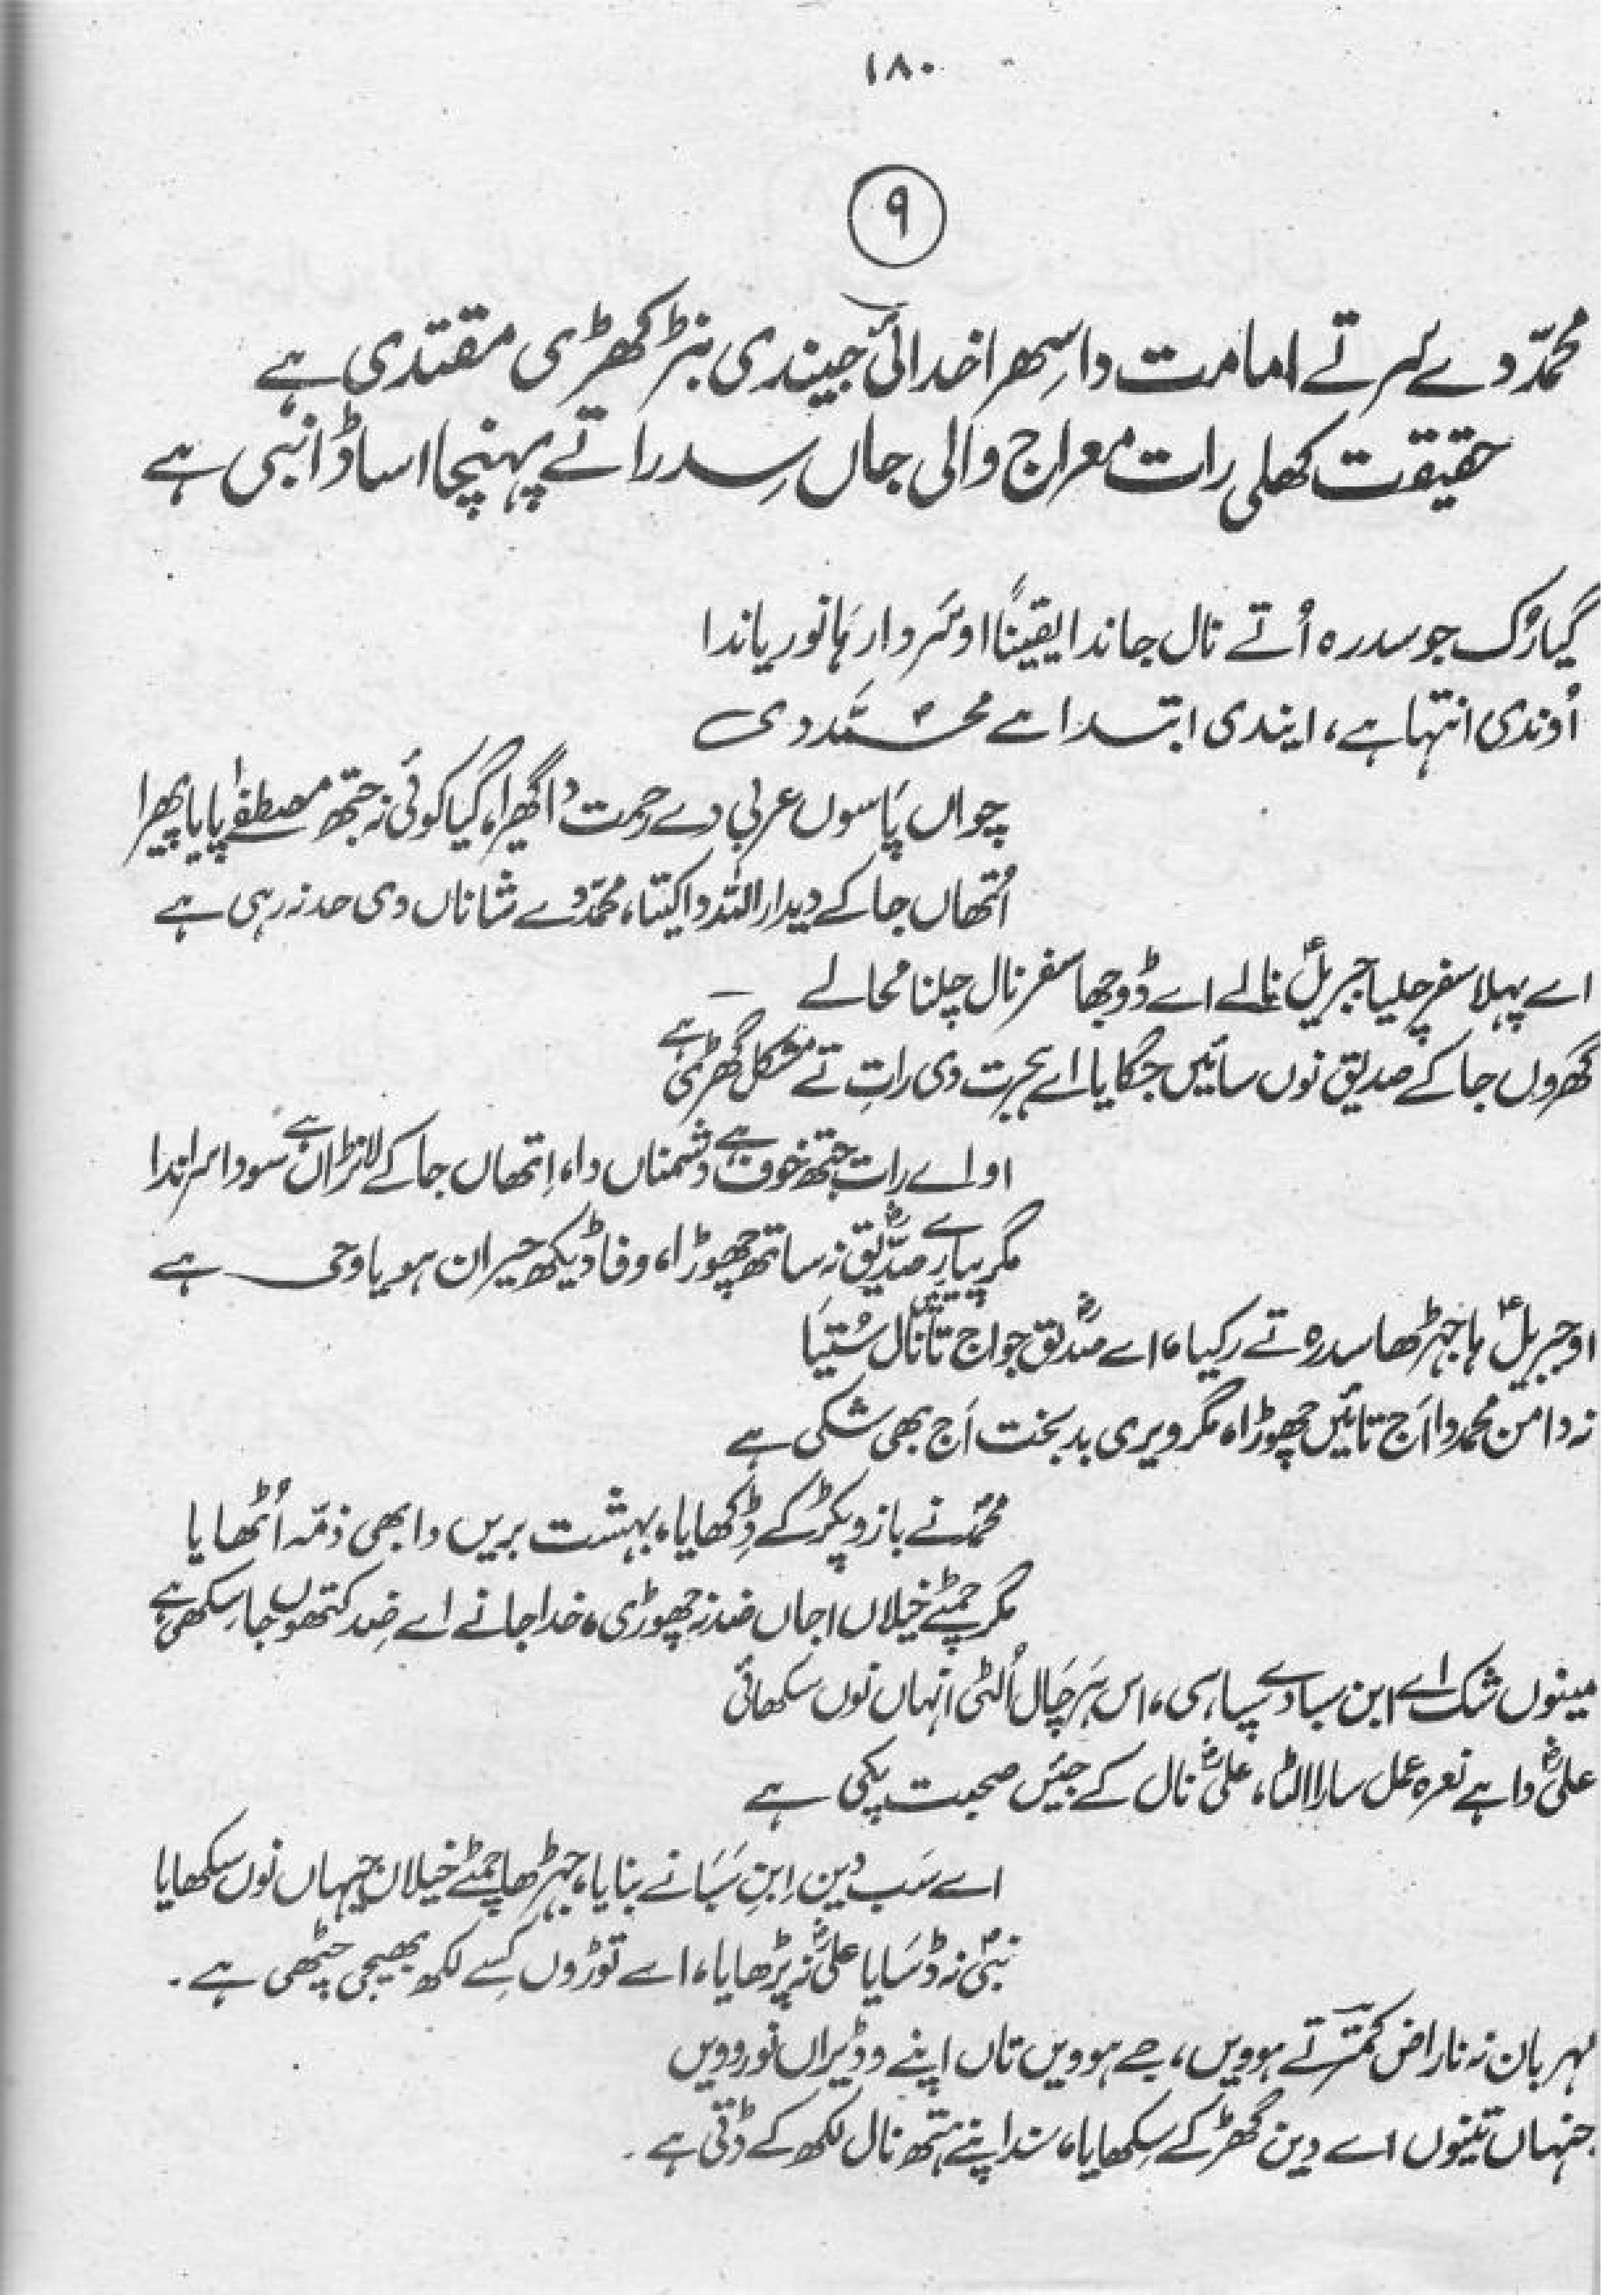 ۱۸۰
۹
محمدؐ دے سر تے امامت دا سہرا خدائی جیندی بنڑ کھڑی مقتدی ہے
حقیقت کھلی رات معراج والی جاں سِدرا تے پہنچا اساڈا نبی ہے
گیا رُک جو سدرہ اُتے نال جاندا یقیناً او سَردار ہَا نوریاندا
اُوندی انتہا ہے، ایندی ابتدا ہے محمّدؐ دی
چواں پَاسوں عربی دے رحمت دا گھیرا، گیا کوئی نہ جتھ مصطفےٰ پایا پھیرا
اُتھاں جا کے دیدار اللہ دا کیتا، محمدؐ دے شاناں دی حد نہ رہی ہے
اے پہلا سفر چلیا جبریلؑ نالے اے ڈوجھا سفر نال چلنا محالے
گھروں جا کے صدیق نوں سائیں جگایا اے ہجرت دی رات تے مشکل گھڑی ہے
او اے رات جتھ خوف ہے دشمناں دا، اِتھاں جا کے لانڑاں ہے سودا سراندا
مگر پیارے صدّیقؓ نہ ساتھ چھوڑا، وفا ڈیکھ حیران ہویا وحی ہے
او جبریلؑ ہا جہڑھا سدرہ تے رکیا، اے صدّیقؓ جو اج تائیں نال سُتیَا
نہ دامن محمد دا اَج تائیں چھوڑا، مگر ویری بدبخت اَج بھی شکی ہے
محمدؐ نے بازو پکڑ کے ڈِکھایا، بہشت بریں دا بھی ذمّہ اُٹھایا
مگر چمٹے خیلاں اجاں ضد نہ چھوڑی، خدا جانے اے ضِد کتھوں جا سکھی ہے
مینوں شک اے ابن سبا دے سپاہی، اس ہَر چَال اُلٹی انہاں نوں سکھائی
علیؓ دا ہے نعرہ عمل سارا الٹا، علیؓ نال کے جیئں صحبت پکی ہے
اے سَب دین اِبنِ سَبَا نے بنایا، جہڑھا چمٹے خیلاں جہاں نوں سکھایا
نبیؐ نہ ڈسَایا علیؓ نہ پڑھایا، اے توڑوں کِسے لکھ بھیجی چٹھی ہے۔
مہربان نہ ناراض کمترؔ تے ہوویں، جے ہوویں تاں اپنے وڈیراں نو روویں
جنہاں تینوں اے دین گھڑ کے سکھایا، سند اپنے ہتھ نال لکھ کے ڈتی ہے۔